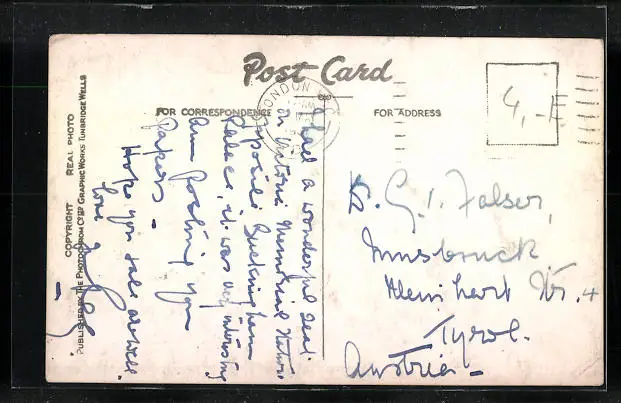 Post Card
FOR CORRESPONDENCE
FOR ADDRESS
LONDON
4,-E
I had a wonderful seat
on Victoria Memorial Statue
opposite Buckingham
Palace, it was very interesting
am Posting you
Papers -
Hope you both are well.
love
G. I. Falser,
Innsbruck
Str. 4
Tyrol.
Austria -
COPYRIGHT REAL PHOTO
PUBLISHED BY THE PHOTOCHROM CO LTD GRAPHIC WORKS TUNBRIDGE WELLS